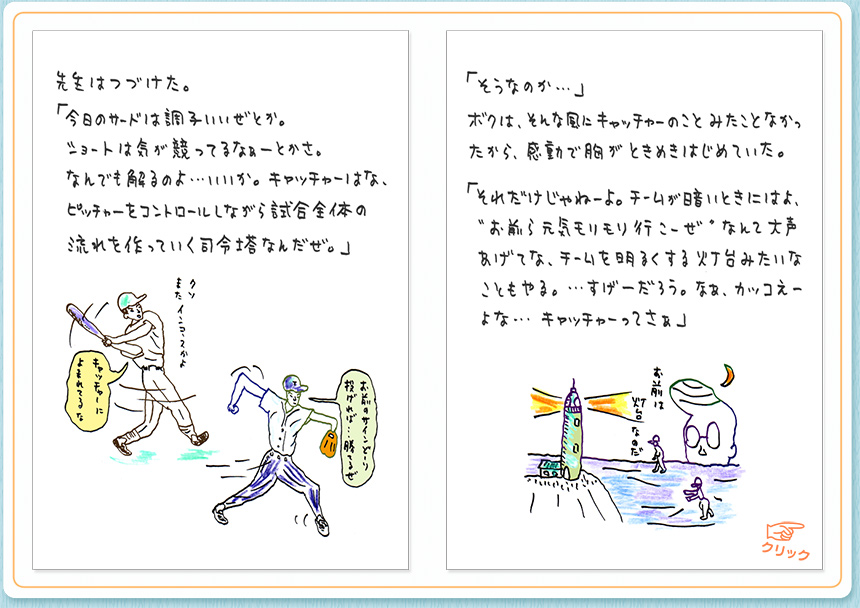 先生はつづけた。
「今日のサードは調子いいぜとか。
ショートは気が競ってるなぁーとかさ。
なんでも解るのよ…いいか。キャッチャーはな、
ピッチャーをコントロールしながら試合全体の
流れを作っていく司令塔なんだぜ。」
クソ
また インコースかよ
キャッチャーに
よまれてるな
お前のサインどーり
投げれば…勝てるぜ
「そうなのか…」
ボクは、そんな風にキャッチャーのこと みたことなかっ
たから、感動で胸が ときめきはじめていた。
「それだけじゃねーよ。チームが暗いときにはよ、
"お前ら元気モリモリ行こーぜ"なんて大声
あげてな、チームを明るくする灯台みたいな
こともやる。…すげーだろう。なぁ、カッコえー
よな… キャッチャーってさぁ」
お前は
灯台
なのだ
クリック